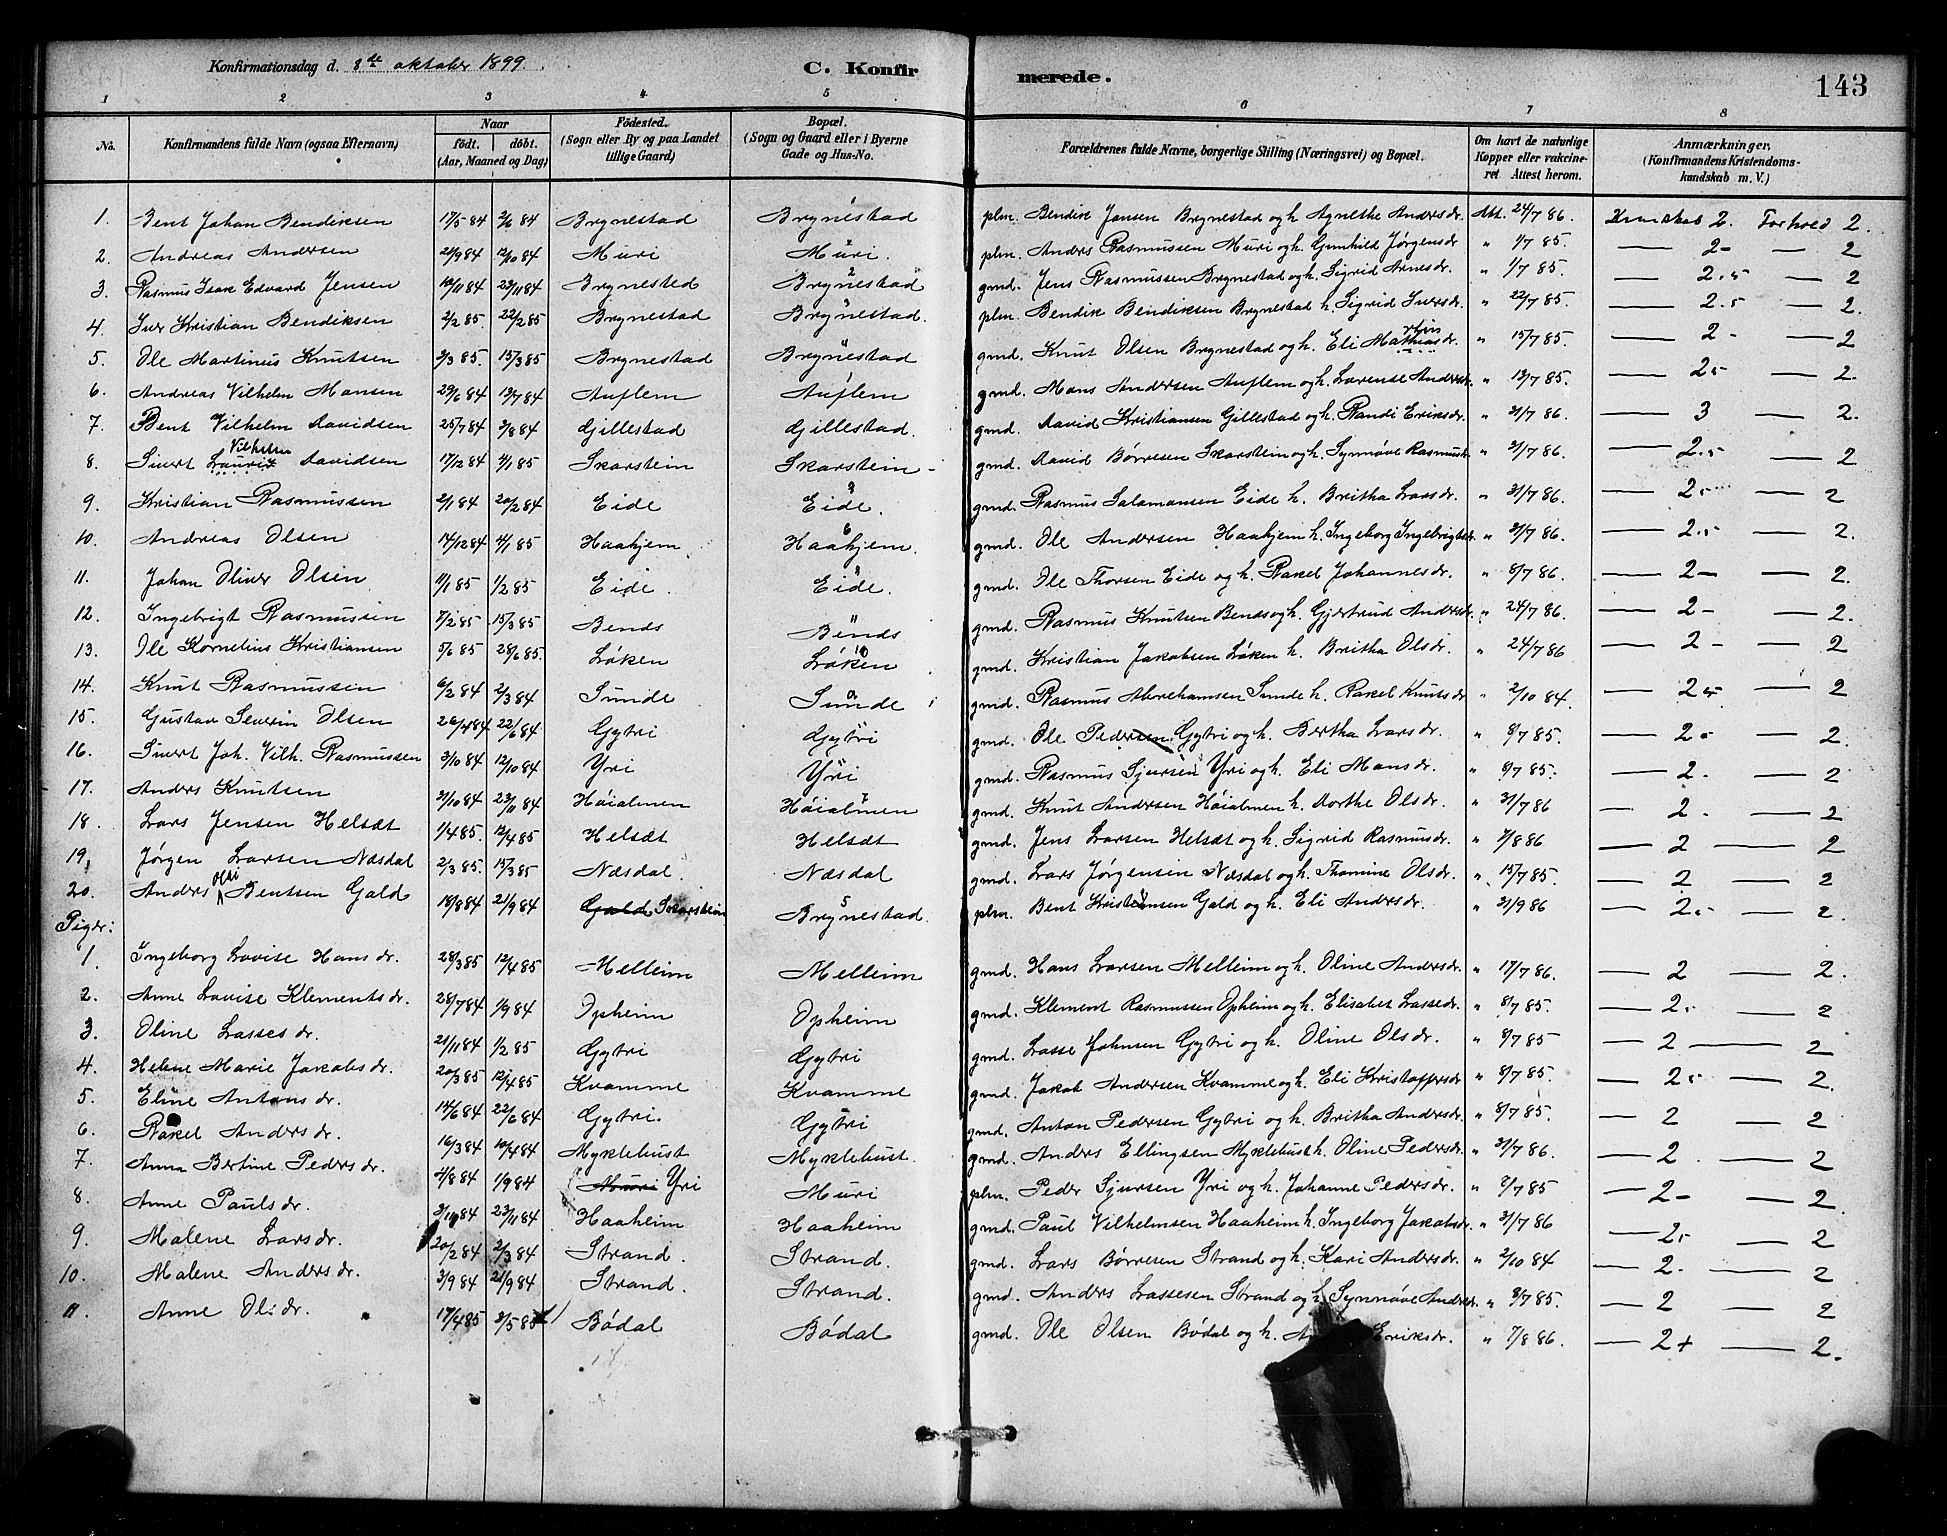 Konfirmationsdag d. 8de oktober 1899. C. Konfirmerede. 143
1 2 3 4 5 6 7 8
No. Konfirmandens fulde Navn (ogsaa Efternavn) Naar født. døbt. (Aar, Maaned og Dag) Fødested. (Sogn eller By og paa Landet tillige Gaard) Bopæl. (Sogn og Gaard eller i Byerne Gade og Hus-No. Forældrenes fulde Navne, borgerlige Stilling (Næringsvei) og Bopæl. Om havt de naturlige Kopper eller vakcineret Attest herom. Anmærkninger, (Konfirmandens Kristendomskundskab m. V.)
1. Bent Johan Bendiksen 17/5 84 2/6 84 Brynestad Brynestad plm. Bendik Jansen Brynestad og h. Agnethe Andersdr. Att. 24/7 86. Kundskab 2. Forhold 2.
2. Andreas Andersen 21/9 84 12/10 84 Muri Muri. plm. Anders Rasmussen Muri og h. Gunhild Jørgensdr " 1/7 85. — 2- — 2
3. Rasmus Isak Edvard Jensen 10/11 84 23/11 84 Brynested Brynestad gmd. Jens Rasmussen Brynestad og h. Sigrid Arnesdr. " 1/7 85. — 2.5 — 2
4. Iver Kristian Bendiksen 2/2 85. 22/2 85 Brynestad Brynestad. plm. Bendik Bendiksen Brynestad h. Sigrid Iversdr. " 22/7 85. — 2.5 — 2.
5. Ole Martinus Knutsen 3/3 85. 15/3 85 Brynestad Brynestad gmd. Knut Olsen Brynestad og h. Eli Mathiasdr. " 15/7 85. — 2- — 2
6. Andreas Vilhelm Mansen 29/6 84 13/7 84 Auflem Auflem gmd. Mans Andersen Auflem og h. Lovense Andersdr. " 13/7 85. — 2- — 2.
7. Bent Vilhelm Davidsen 25/7 84 3/8 84 Gillestad Gillestad. gmd. David Kristiansen Gillestad og h. Randi Eriksdr. " 31/7 86. — 3 — 2.
8. Sivert Vilhelm Davidsen 17/12 84 4/1 85 Skarstein Skarstein gmd. David Børresen Skarstein og h. Synnøve Rasmusdr. " 31/7 86. — 2.5 — 2
9. Kristian Rasmussen 2/1 84 20/2 84 Eide Eide. gmd. Rasmus Salamonsen Eide h. Britha Larsdr. " 31/7 86. — 2.- — 2
10. Andreas Olsen 14/12 84 4/1 85 Haahjem Haahjem. gmd. Ole Andersen Haahjem h. Ingeborg Ingebrigtsdr. " 31/7 86. — 2.5 — 2.
11. Johan Oliver Olsen 11/1 85 1/2 85 Eide. Eide. gmd. Ole Thorsen Eide og h. Rakel Johannesdr. " 8/7 86. — 2- — 2.
12. Ingebrigt Rasmussen 7/2 85 15/3 85 Bends Bends gmd. Rasmus Knutsen Bends og h. Gjertrud Andersdr. " 24/7 86. — 2- — 2.
13. Ole Kornelius Kristiansen 5/6 85 28/6 85. Løken Løken gmd. Kristian Jakobsen Løken h. Britha Olsdr. " 24/7 86 — 2- — 2
14. Knut Rasmussen 6/2 84 2/3 84 Sunde Sunde gmd. Rasmus Abrehamsen Sunde h. Rakel Knutsdr " 2/10 84. — 2- — 2
15. Gustav Severin Olsen 26/4 84 22/6 84 Gytri Gytri gmd. Ole Pedersen Gytri og h. Bertha Larsdr. " 8/7 85. — 2- — 2.
16. Sivert Joh. Vilh. Rasmussen 3/10 84 12/10 84 Yri Yri gmd. Rasmus Sjursen Yri og h. Eli Mansdr. " 8/7 85. — 2. — 2
17. Anders Knutsen 31/10 84 23/11 84 Høialmen Høialmen gmd. Knut Andersen Høialmen h. Dorthe Olsdr. " 31/7 86 — 2. — 2
18. Lars Jensen Helsæt 1/4 85. 12/4 85 Helsæt Helsæt gmd. Jens Larsen Helsæt og h. Sigrid Rasmusdr. " 7/8 86 — 2 — 2
19. Jørgen Larsen Næsdal 2/3 85. 15/3 85 Næsdal. Næsdal gmd. Lars Jørgensen Næsdal og h. Thomine Olsdr. " 15/7 85. — 2 — 2
20. Anders Bentsen Gald 18/8 84 21/9 84 Gald Skarstein Brynestad. plm. Bent Kristiansen Gald og h. Eli Andersdr. " 31/9 86 — 2.- — 2.
Piger:
1. Ingeborg Lovise Hansdr. 28/3 85 12/4 85 Melleim Melleim gmd. Hans Larsen Melleim og h. Oline Andersdr. " 17/7 86. — 2 — 2.
2. Anne Lovise Klementsdr. 28/7 84 1/9 84 Opheim Opheim gmd. Klement Rasmussen Opheim og h. Elisabet Lassedr. " 8/7 85. — 2. — 2
3. Oline Lassesdr. 21/11 84 1/2 85 Gytri Gytri gmd. Lasse Johnsen Gytri og h. Oline Olsdr. " 8/7 85 — 2 — 2
4. Helene Marie Jakobsdr. 20/3 85 12/4 85 Kvamme Kvamme gmd. Jakob Andersen Kvamme og h. Eli Kristoffersdr " 8/7 85. — 2- — 2.
5. Eline Antonsdr. 14/6 84 22/6 84 Gytri. Gytri gmd. Anton Pedersen Gytri og h. Britha Andersdr. " 8/7 85. — 2 — 2
6. Rakel Andersdr. 16/3 84 10/4 84 Myklebust Myklebust. gmd. Anders Ellingsen Myklebust h. Oline Pedersdr. " 31/7 86. — 2. — 2
7. Anna Bertine Pedersdr. 4/8 84 1/9 84 Muri Yri Muri plm. Peder Sjursen Yri og h. Johanne Pedersdr. " 8/7 85 — 2- — 2.
8. Anne Paulsdr. 3/11 84 23/11 84 Haaheim Haaheim gmd. Paul Vilhelmsen Haaheim h. Ingeborg Jakobsdr. " 31/7 86 — 2. — 2
9. Malene Larsdr. 20/2 84 2/3 84 Strand. Strand. gmd. Lars Børresen Strand og h. Kari Andersdr. " 2/10 84 — 2. — 2
10. Malene Andersdr. 3/9 84 21/9 84 Strand. Strand. gmd. Anders Lassesen Strand og h. Synnøve Andersdr. " 8/7 85. — 2 — 2
11. Anne Olsdr. 17/4 85 3/5 85 Bødal Bødal gmd. Ole Olsen Bødal og h. Eriksdr. " 7/8 86. — 2+ — 2.